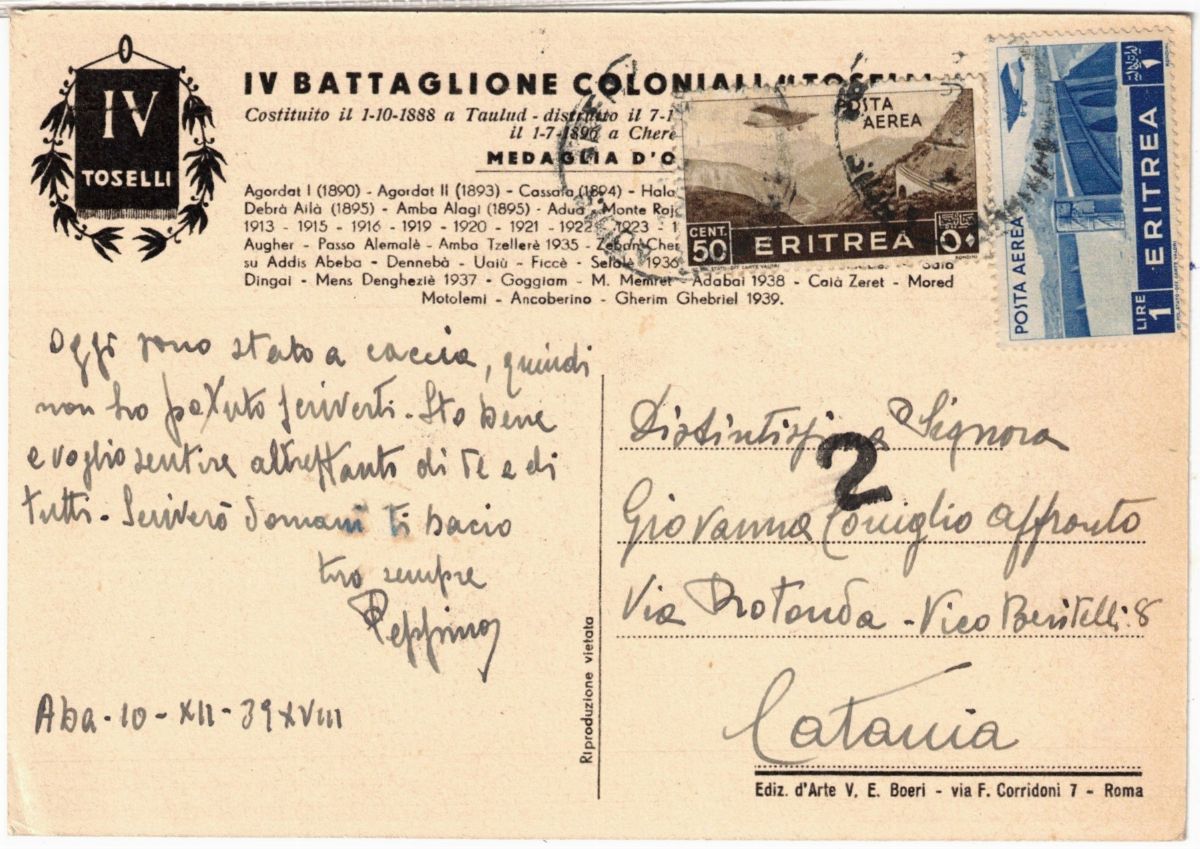 IV
TOSELLI
IV BATTAGLIONE COLONIALI "TOSELLI"
Costituito il 1-10-1888 a Taulud - distrutto il 7-1
il 1-7-1896 a Chere
MEDAGLIA D'O
Agordat I (1890) - Agordat II (1893) - Cassala (1894) - Hala
Debrà Ailà (1895) - Amba Alagi (1895) - Adua - Monte Raj
1913 - 1915 - 1916 - 1919 - 1920 - 1921 - 1922 - 1923 - 1
Augher - Passo Alemalè - Amba Tzellerè 1935 - Zeban Cher
su Addis Abeba - Dennebà - Uaiù - Ficcè - Selale 1936 Saia
Dingai - Mens Dengheziè 1937 - Goggiam - M. Memret - Adabai 1938 - Caià Zeret - Mored
Motolemi - Ancoberino - Gherim Ghebriel 1939.
POSTA
AEREA
CENT.
50 ERITREA
POSTA AEREA
LIRE
1 ERITREA
Oggi sono stato a caccia, quindi
non ho potuto scriverti - Sto bene
e voglio sentire altrettanto di te e di
tutti - Scriverò domani ti bacio
tuo sempre
Peppino
Aba - 10 - XII - 39 XVIII
Riproduzione vietata
Distintissima Signora
2
Giovanna Coniglio Affronto
Via Rotonda - Vico Beritelli 8
Catania
Ediz. d'Arte V. E. Boeri - via F. Corridoni 7 - Roma